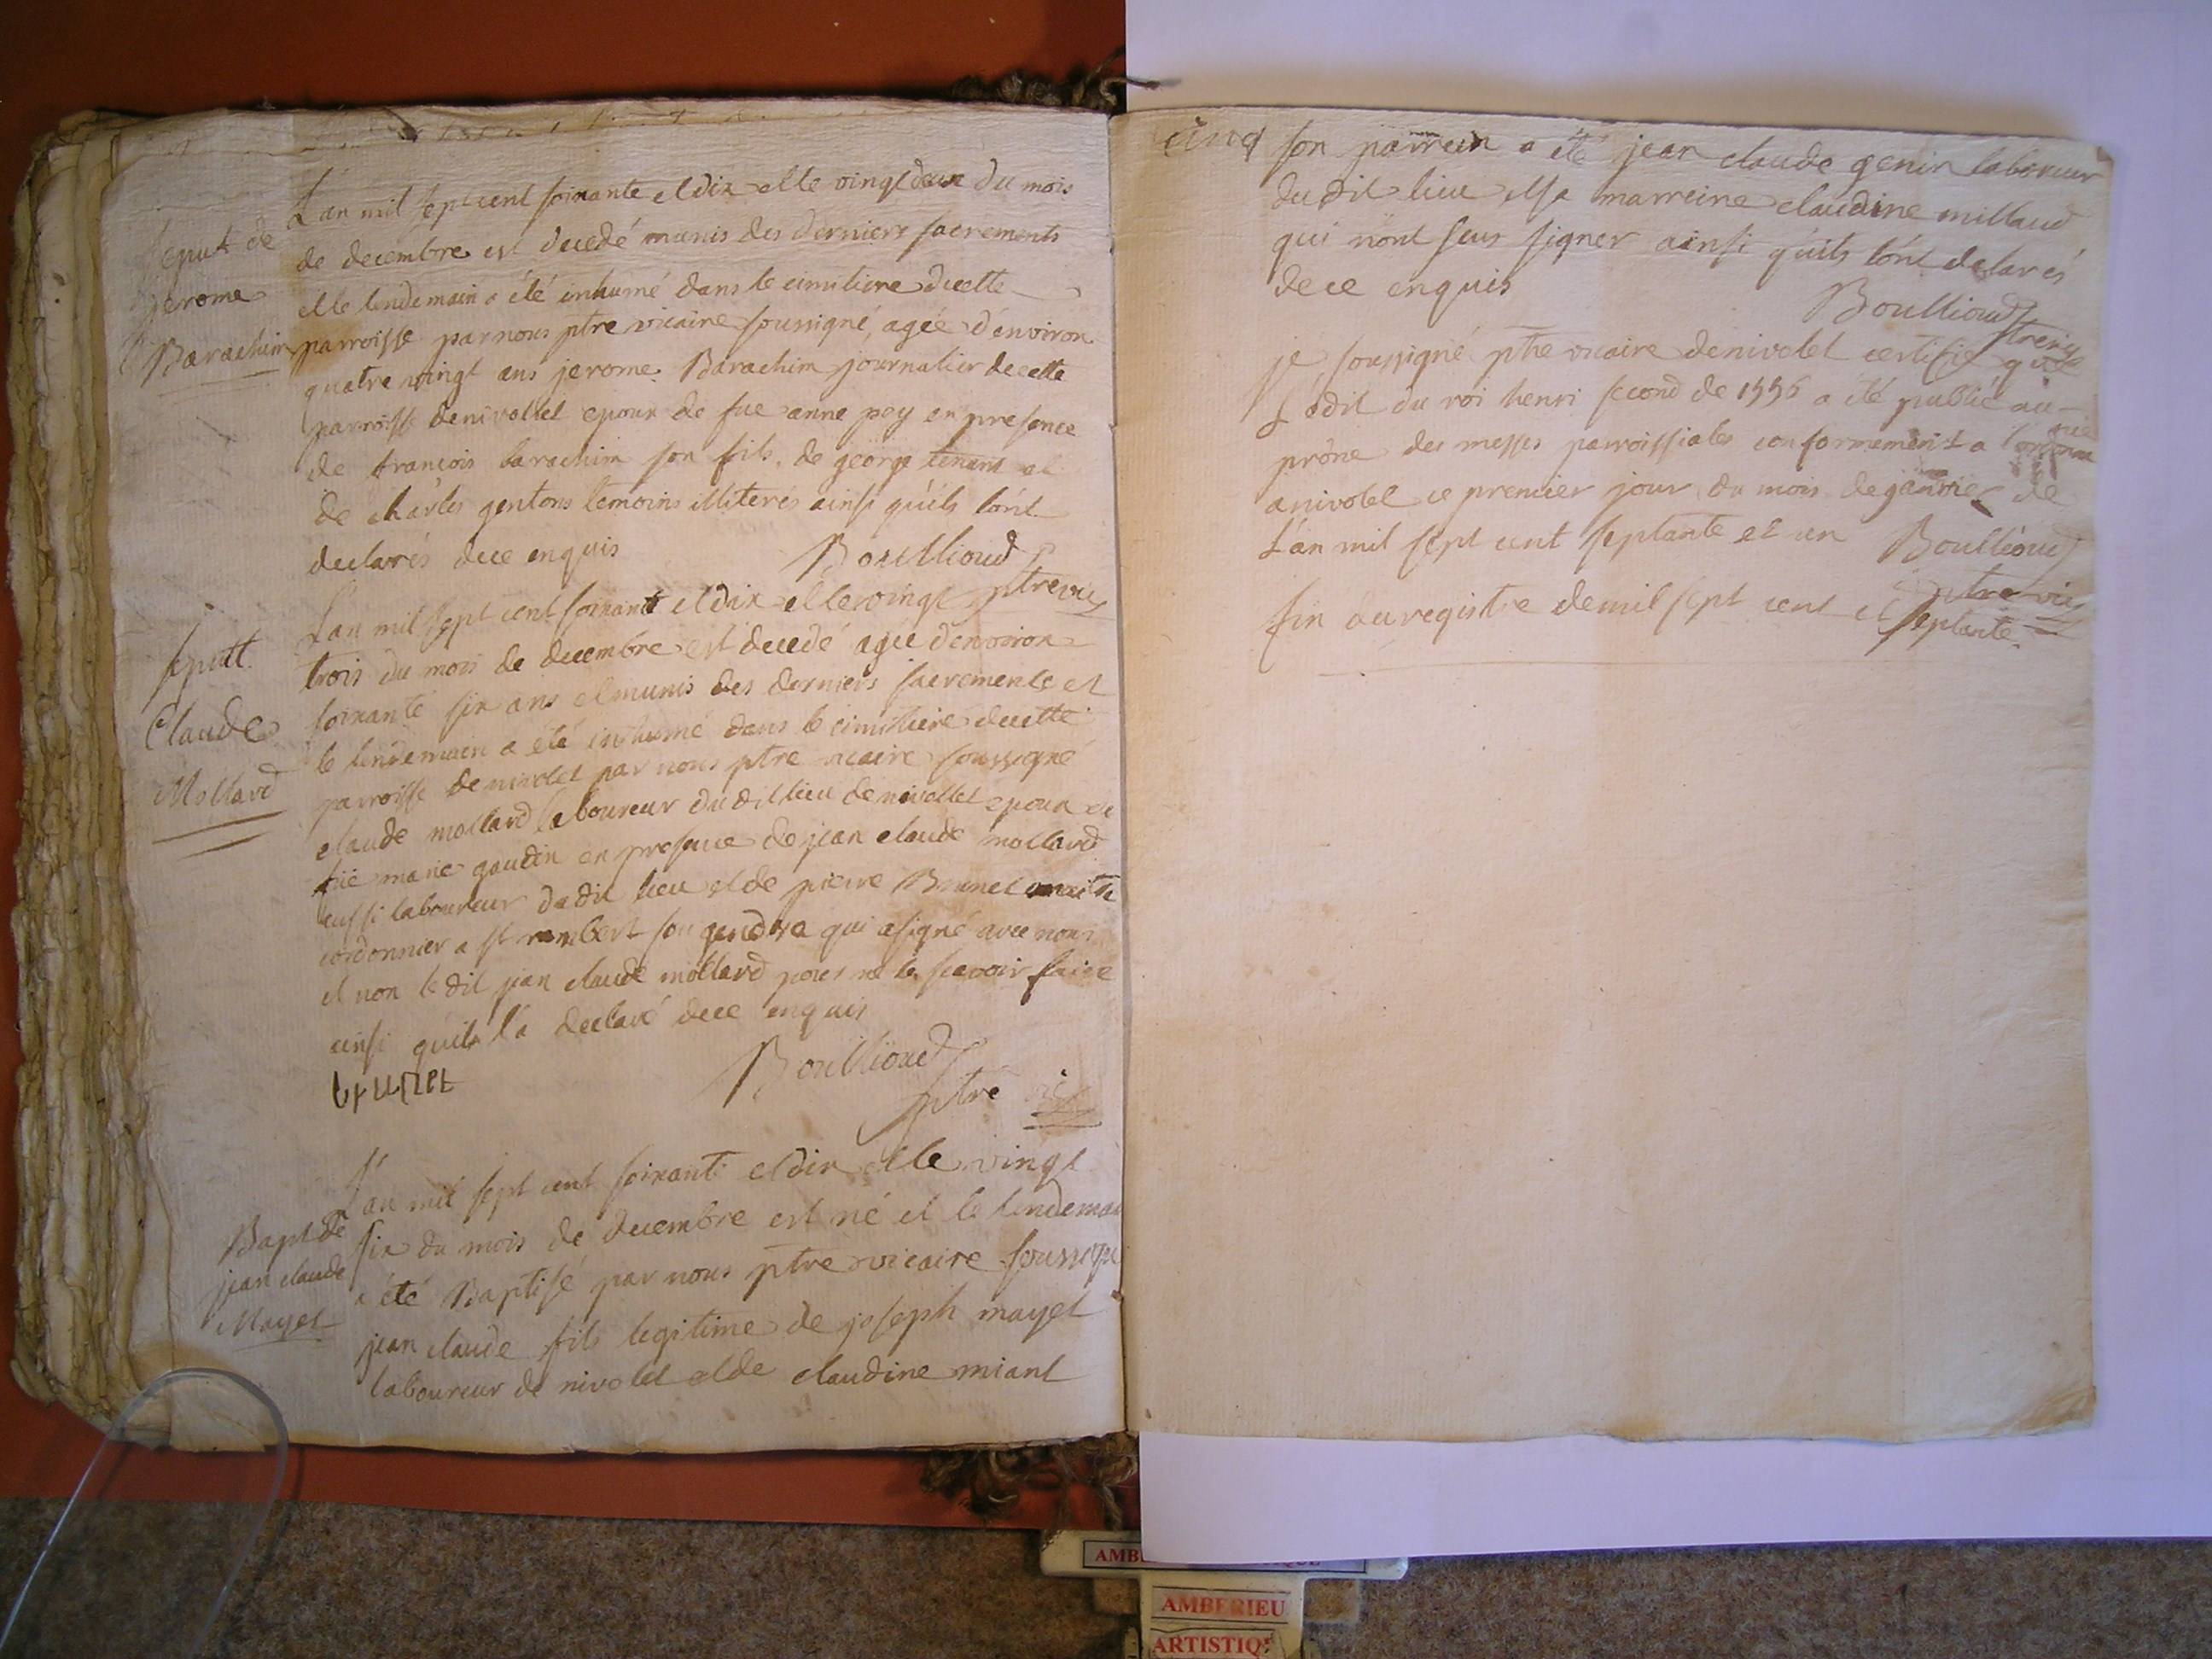 Seput de
jerome
Barachin
L'an mil sept cent soixante et dix et le vingt deux du mois
de decembre est decedé munis des derniers sacrements
et le lendemain a été inhumé dans le cimitiere decette
parroisse par nous ptre vicaire soussigné, agée d'environ
quatre vingt ans jerome Barachin journalier decette
parroisse denivollet epoux de fue anne pey en presence
de francois barachin son fils, de george tenant et
de charles gentons temoins illiterés ainsi qu'ils l'ont
declarés dece enquis Boullioud
ptre vic
Sepult.
Claude
Mollard
L'an mil sept cent soixante et dix et le vingt
trois du mois de decembre est decedé agée d'environ
soixante six ans et munis des derniers sacrements et
le lendemain a été inhumé dans le cimitiere decette
parroisse de nivolet par nous ptre vicaire soussigné
claude mollard laboureur du dit lieu de nivollet epoux de
fue marie gaudin en presence de jean claude mollard
aussi laboureur dudit lieu et de pierre Brunet maitre
cordonnier a st rambert son gendre qui a signé avec nous
et non le dit jean claude mollard pour ne le scavoir faire
ainsi quil l'a declaré dece enquis
brunet Boullioud
ptre vic
Bapt de
jean claude
Mayet
L'an mil sept cent soixante et dix et le vingt
six du mois de decembre est né et le lendemai
a été Baptisé par nous ptre vicaire soussigné
jean claude fils legitime de joseph mayet
laboureur de nivolet et de claudine miant
cinq son parrein a été jean claude genin laboreur
du dit lieu et sa marreine claudine millaud
qui n'ont seus signer ainsi qu'ils l'ont declarés
dece enquis Boullioud
ptre vic
je soussigné ptre vicaire denivolet certifie que
L'édit du roi henri second de 1556 a été publié au
prône des messes parroissiales conformement a l'ordonnance
a nivolet ce premier jour du mois de janvier de
L'an mil sept cent septante et un Boullioud
ptre vic
fin du registre demil sept cent et septante.
AMBERIEU
ARTISTIQ